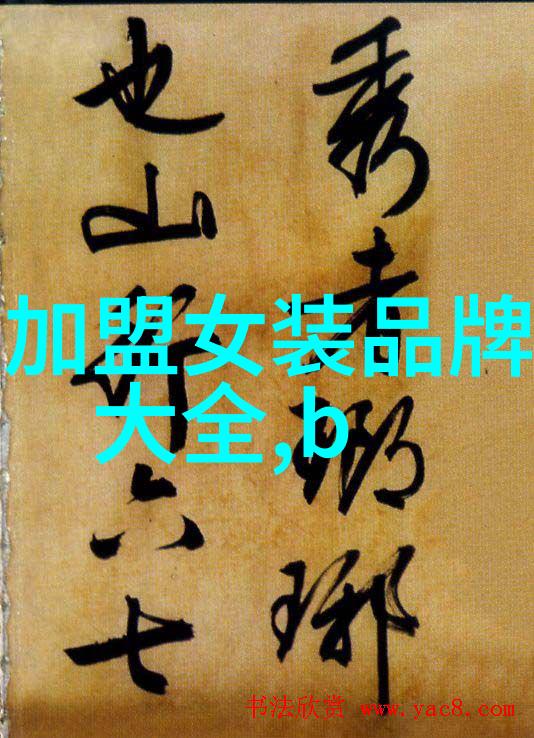 秀者琅琊
也山行六七
加盟女装品牌
大全,b
书法欣赏 www.yac8.com